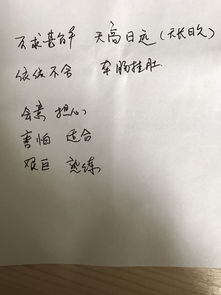 不求甚解 天高日远(天长日久)
依依不舍 牵肠挂肚
会意 担心
害怕 适合
艰巨 熟练